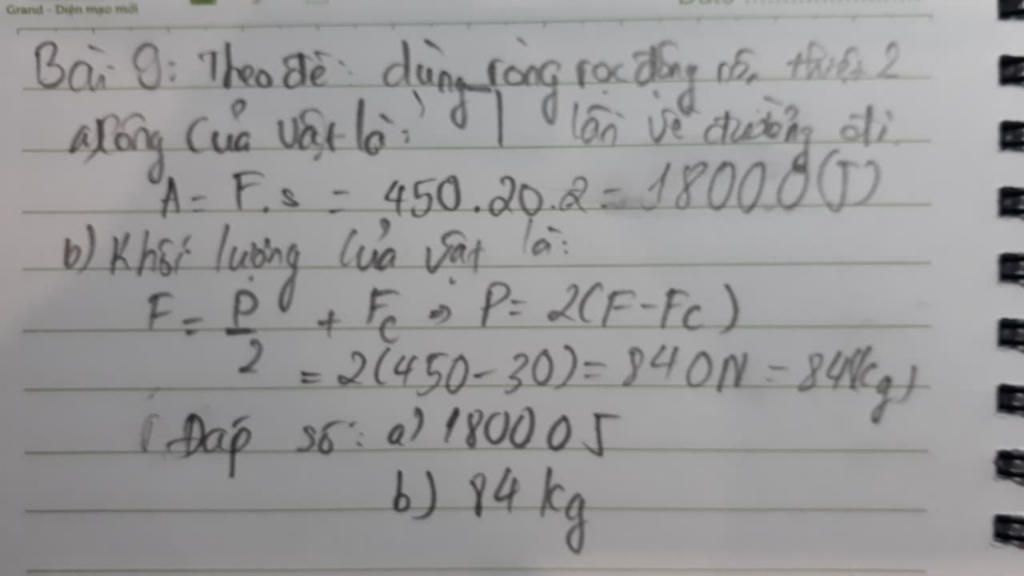 Grand - Diện mạo mới
Bài 9: Theo đề: dùng ròng rọc động nên thiệt 2
a) Công của vật là: lần về đường đi
A = F.s = 450.20.2 = 18000(J)
b) Khối lượng của vật là:
F = P/2 + Fc => P = 2(F-Fc)
= 2(450-30) = 840N = 84(kg)
Đáp số: a) 18000J
b) 84 kg